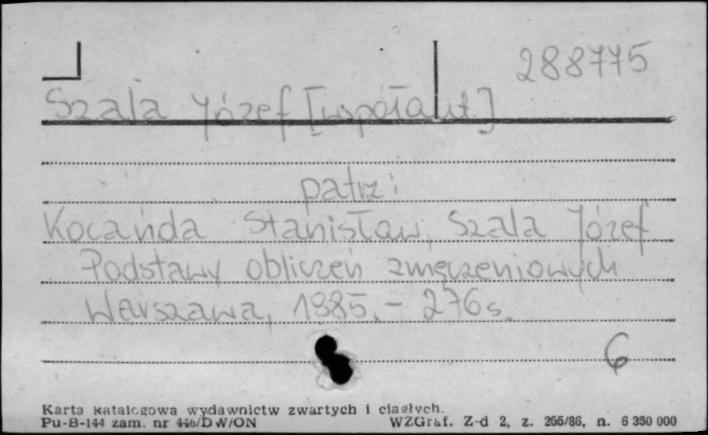 288775
Szala Józef [współaut.]
patrz:
Kocańda Stanisław, Szala Józef
Podstawy obliczeń zmęczeniowych
Warszawa, 1985. - 276 s.
6
Karta katalogowa wydawnictw zwartych i ciągłych.
Pu-B-144 zam. nr 446/DW/ON WZGraf. Z-d 2, z. 266/86, n. 6 350 000